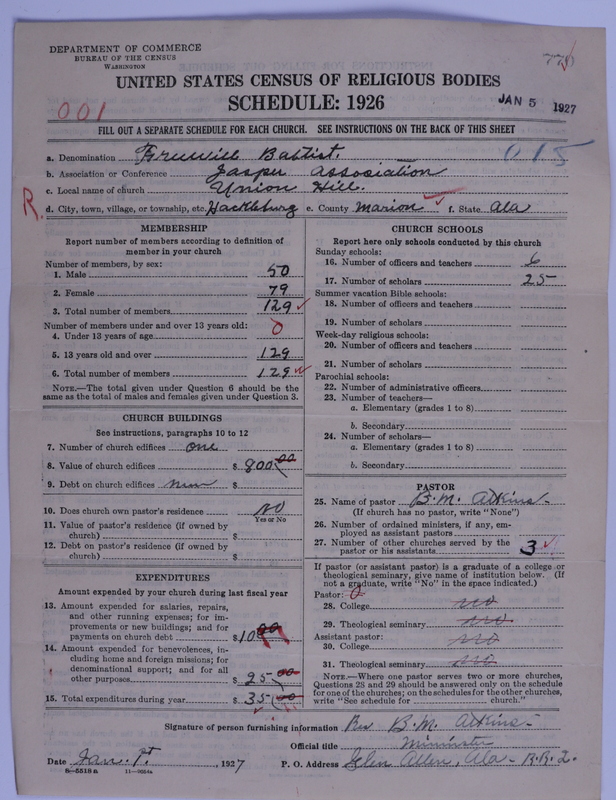 DEPARTMENT OF COMMERCE
BUREAU OF THE CENSUS
WASHINGTON
770
UNITED STATES CENSUS OF RELIGIOUS BODIES
SCHEDULE: 1926
001
JAN 5 1927
FILL OUT A SEPARATE SCHEDULE FOR EACH CHURCH. SEE INSTRUCTIONS ON THE BACK OF THIS SHEET
015
a. Denomination Freewill Baptist.
b. Association or Conference Jasper Association
c. Local name of church Union Hill.
R. d. City, town, village, or township, etc. Hackleburg e. County Marion f. State Ala
MEMBERSHIP
Report number of members according to definition of
member in your church
Number of members, by sex:
1. Male 50
2. Female 79
3. Total number of members 129
Number of members under and over 13 years old:
4. Under 13 years of age 0
5. 13 years old and over 129
6. Total number of members 129
NOTE.—The total given under Question 6 should be the
same as the total of males and females given under Question 3.
CHURCH BUILDINGS
See instructions, paragraphs 10 to 12
7. Number of church edifices one
8. Value of church edifices $ 800 00
9. Debt on church edifices $
10. Does church own pastor's residence No
Yes or No
11. Value of pastor's residence (if owned by
church) $
12. Debt on pastor's residence (if owned by
church) $
EXPENDITURES
Amount expended by your church during last fiscal year
13. Amount expended for salaries, repairs,
and other running expenses; for im-
provements or new buildings; and for
payments on church debt $ 10 00
14. Amount expended for benevolences, in-
cluding home and foreign missions; for
denominational support; and for all
other purposes $ 25 00
15. Total expenditures during year $ 35 00
CHURCH SCHOOLS
Report here only schools conducted by this church
Sunday schools:
16. Number of officers and teachers 6
17. Number of scholars 25
Summer vacation Bible schools:
18. Number of officers and teachers
19. Number of scholars
Week-day religious schools:
20. Number of officers and teachers
21. Number of scholars
Parochial schools:
22. Number of administrative officers
23. Number of teachers—
a. Elementary (grades 1 to 8)
b. Secondary
24. Number of scholars—
a. Elementary (grades 1 to 8)
b. Secondary
PASTOR
25. Name of pastor B. M. Atkins
(If church has no pastor, write "None")
26. Number of ordained ministers, if any, em-
ployed as assistant pastors
27. Number of other churches served by the
pastor or his assistants 3
If pastor (or assistant pastor) is a graduate of a college or
theological seminary, give name of institution below. (If
not a graduate, write "No" in the space indicated.)
Pastor: 0
28. College no
29. Theological seminary no
Assistant pastor:
30. College no
31. Theological seminary no
NOTE.—Where one pastor serves two or more churches,
Questions 28 and 29 should be answered only on the schedule
for one of the churches; on the schedules for the other churches,
write "See schedule for church."
Signature of person furnishing information Rev B. M. Atkins
Official title Mininster
Date Jan. 1st., 1927 P. O. Address Glen Allen, Ala - R.R. 2.
8—5518 a 11—9654a